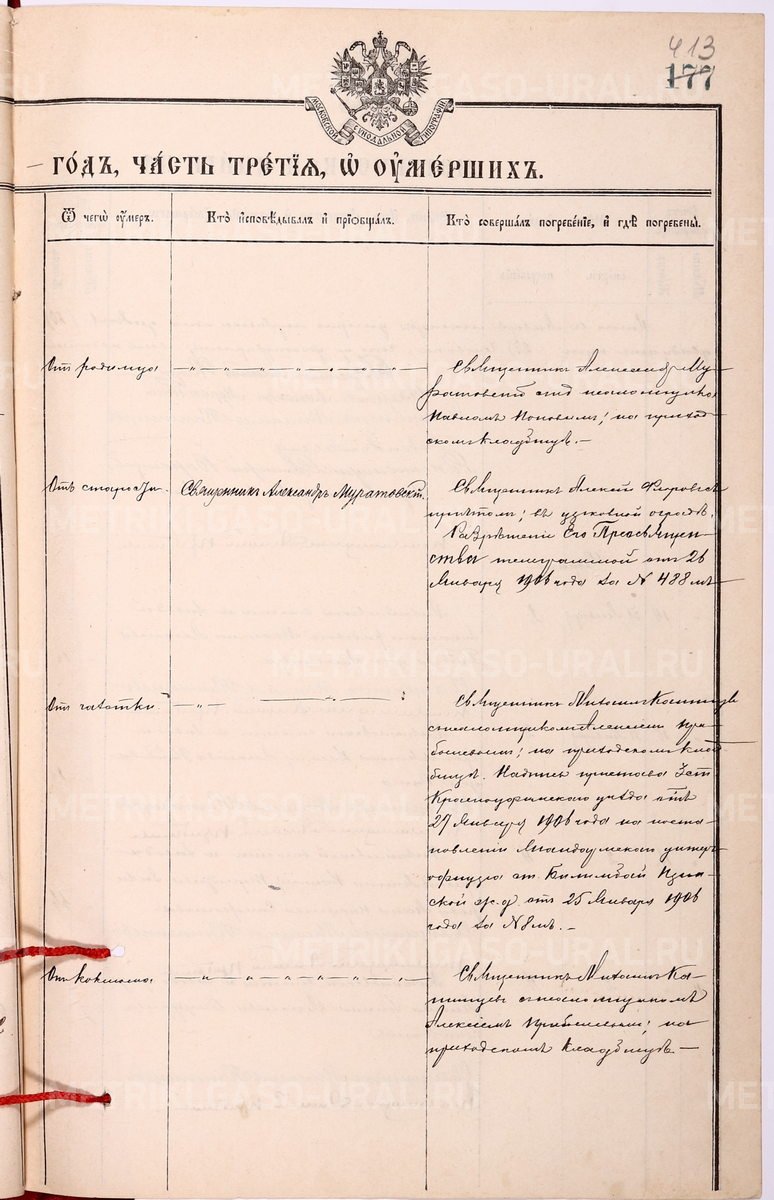 413
177
МОСКОВСКОЙ СѴНОДАЛЬНОЙ ТИПОГРАФІИ
го́дъ, ча́сть тре́тїѧ, ѡ҆ оу҆ме́ршихъ.
Ѿ чегѡ̀ оу҆́меръ.
Кто̀ и҆сповѣ́дывалъ и҆ прїѡбща́лъ.
Кто̀ соверша́лъ погребе́нїе, и҆ гдѣ̀ погребены̀.
Отъ родимца
Священникъ Александръ Му-
ратовскій съ и. д. псаломщика
Павломъ Поповымъ; на приход-
скомъ кладбищѣ. —
Отъ старости.
Священникъ Александръ Муратовскій.
Священникъ Алексѣй
причтомъ; въ церковной оградѣ.
Разрѣшеніе Его Преосвящен-
ства телеграммой отъ 26
Января 1906 года за № 488мъ
Отъ чахотки
Священникъ Михаилъ
съ псаломщикомъ Алексѣемъ
на приходскомъ клад-
бищѣ. Надпись пристава
Красноуфимскаго уѣзда отъ
27 Января 1906 года на поста-
новленіи жандармскаго унтеръ-
офицера ст. Билимбай
ж. д. отъ 25 Января 1906
года за №8мъ. —
Отъ коклюша.
Священникъ Михаилъ
съ псаломщикомъ
Алексѣемъ на
приходскомъ кладбищѣ. —
METRIKI.GASO-URAL.RU